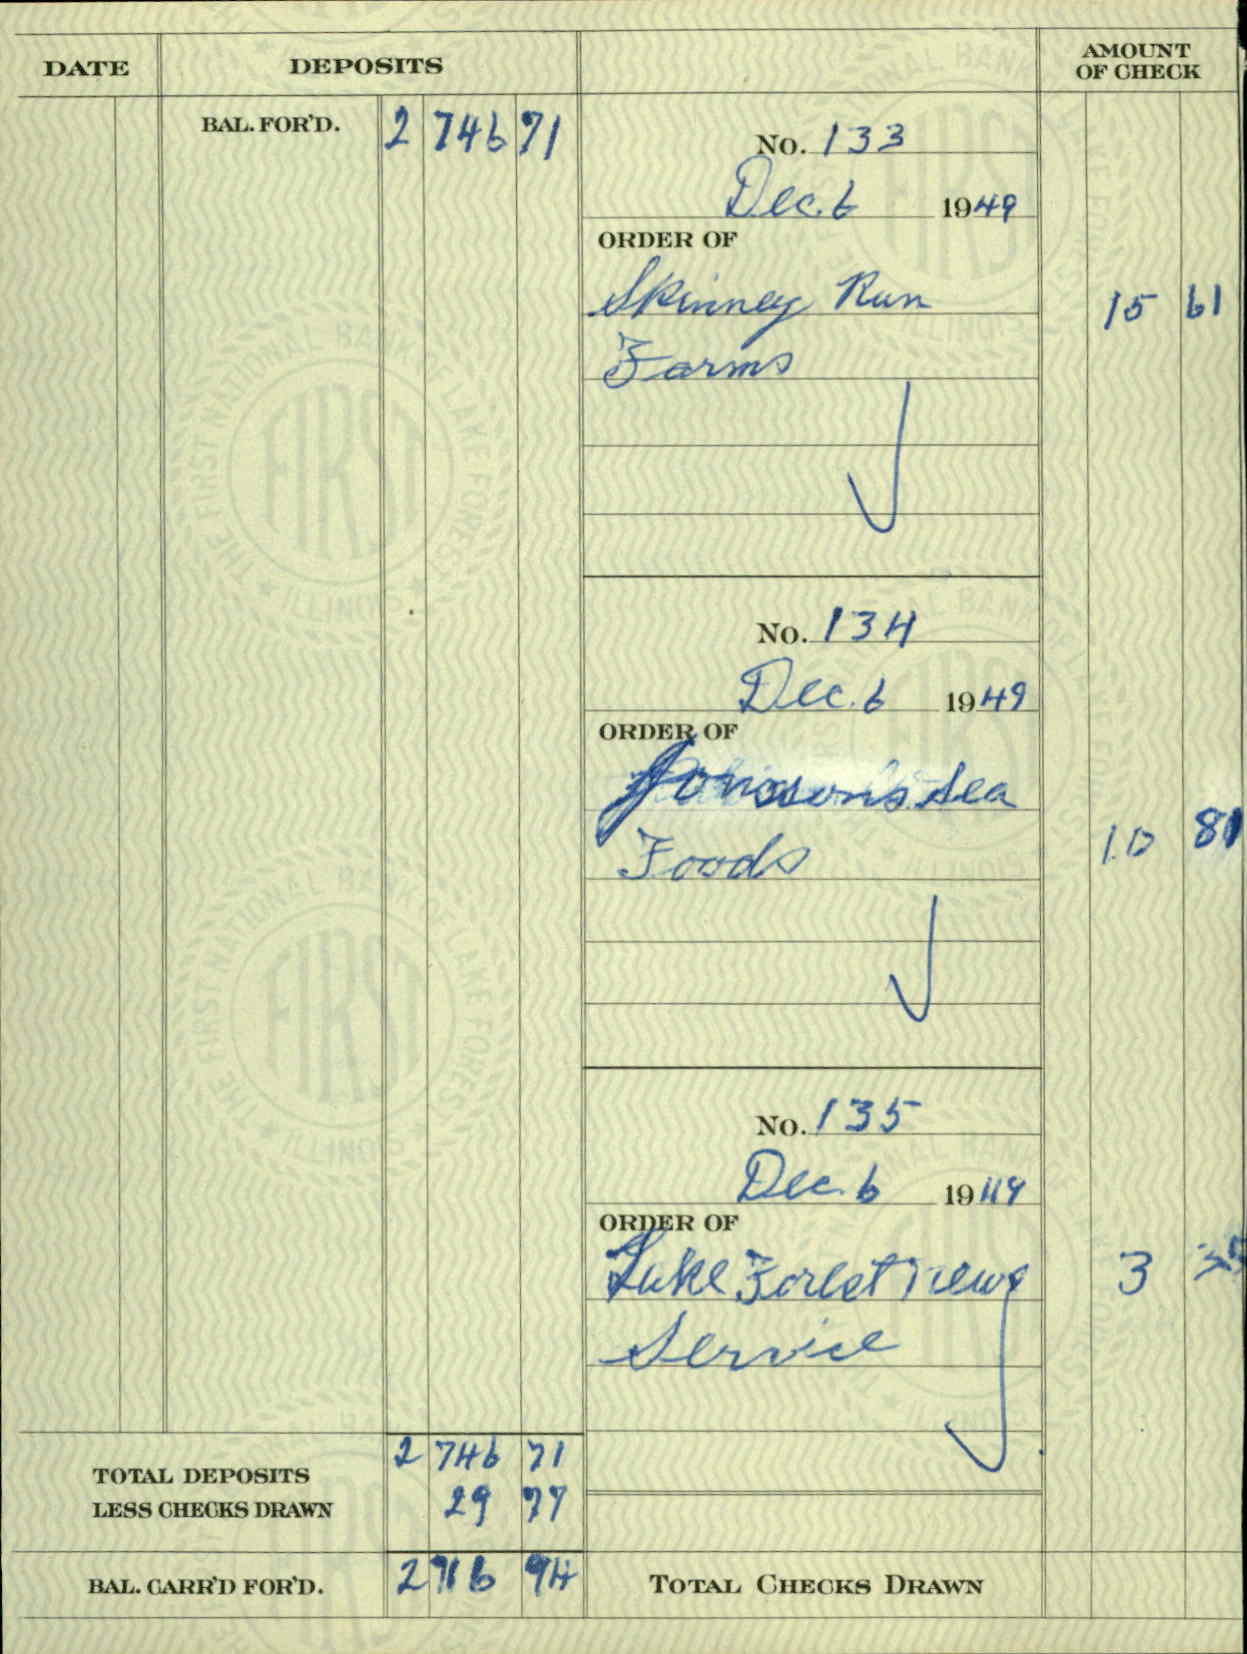 DATE DEPOSITS AMOUNT OF CHECK
BAL. FOR'D. 2 746 71
No. 133
Dec. 6 1949
ORDER OF
Skinney Run 15 61
Farms
No. 134
Dec. 6 1949
ORDER OF
Sea
Foods 10 81
No. 135
Dec. 6 1949
ORDER OF
Lake Forest News 3 35
Service
TOTAL DEPOSITS 2 746 71
LESS CHECKS DRAWN 29 77
BAL. CARR'D FOR'D. 2 716 94
TOTAL CHECKS DRAWN
THE FIRST NATIONAL BANK OF LAKE FOREST
FIRST
ILLINOIS